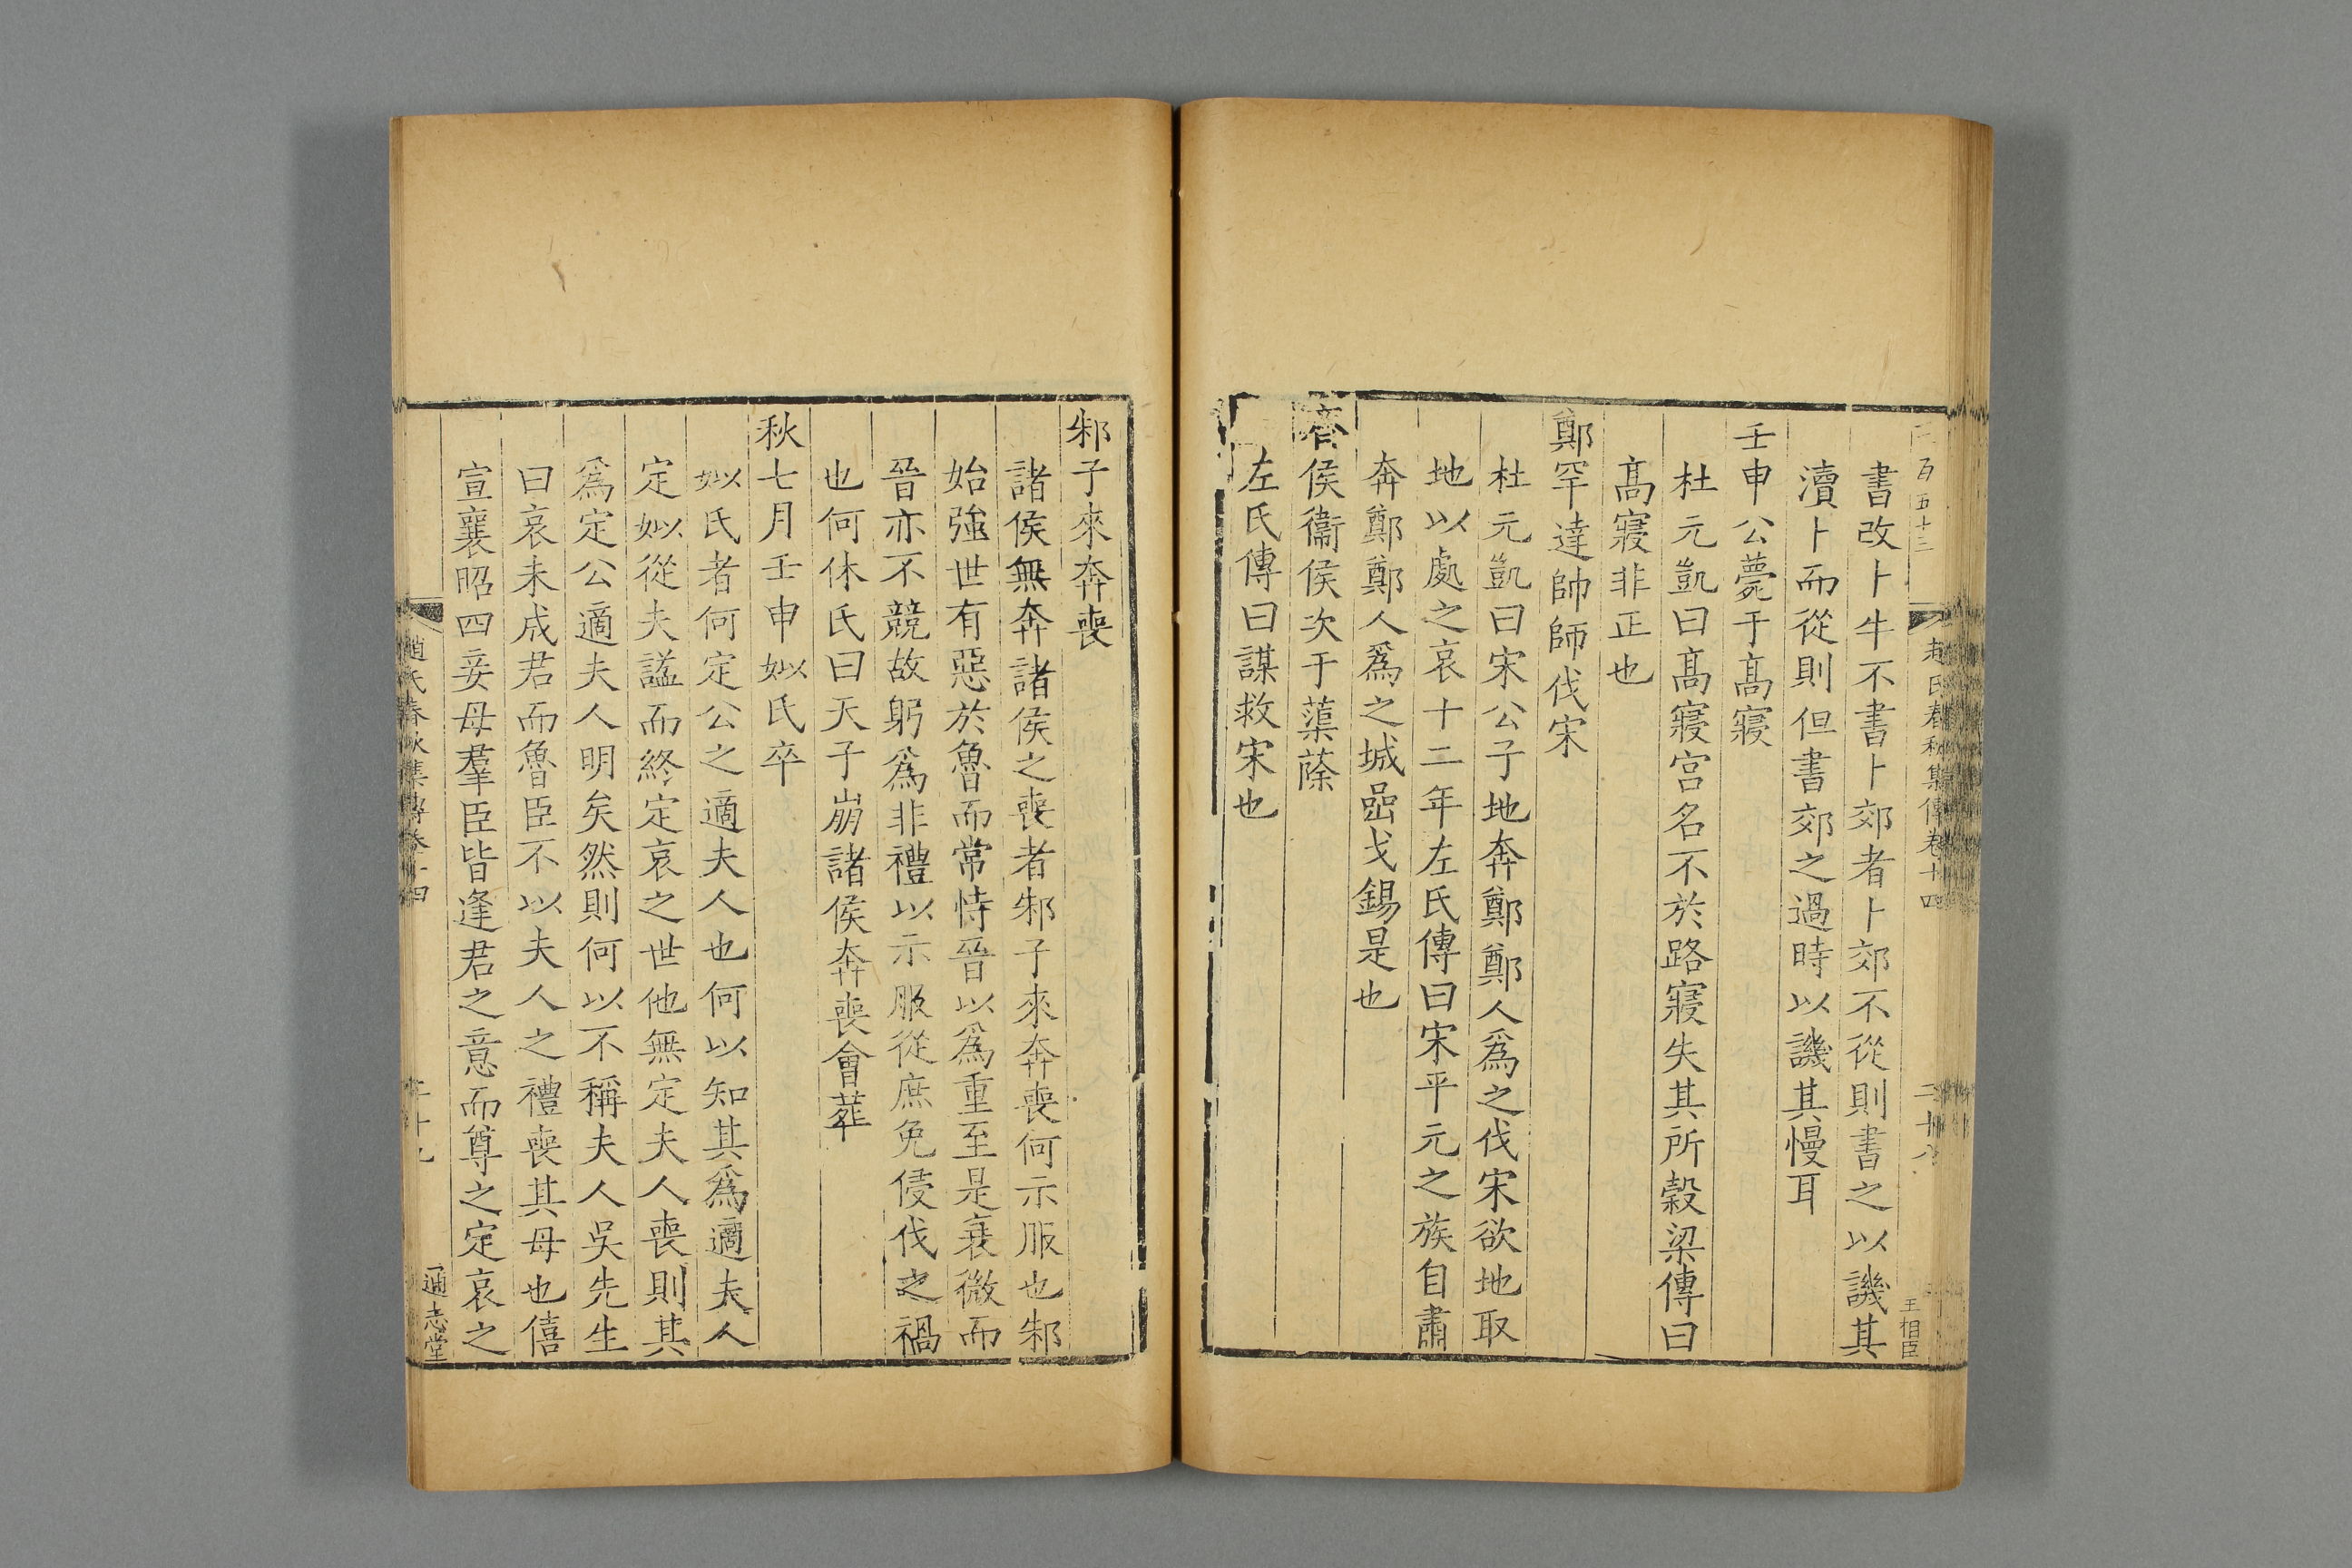 百五十三 趙氏春秋集傳卷十四 二十八 王相臣
書改卜牛不書卜郊者卜郊不從則書之以譏其
瀆卜而從則但書郊之過時以譏其慢耳
壬申公薨于髙寢
杜元凱曰髙寢宮名不於路寢失其所榖梁傳曰
髙寢非正也
鄭罕達帥師伐宋
杜元凱曰宋公子地奔鄭鄭人爲之伐宋欲地取
地以處之哀十二年左氏傳曰宋平元之族自蕭
奔鄭鄭人爲之城嵒戈錫是也
齊侯衞侯次于蕖蒢
左氏傳曰謀救宋也
邾子來奔喪
諸侯無奔諸侯之喪者邾子來奔喪何示服也邾
始強世有惡於魯而常恃晉以爲重至是衰微而
晉亦不競故躬爲非禮以示服從庶免侵伐之禍
也何休氏曰天子崩諸侯奔喪會葬
秋七月壬申姒氏卒
姒氏者何定公之適夫人也何以知其爲適夫人
定姒從夫謚而終定哀之世他無定夫人喪則其
爲定公適夫人明矣然則何以不稱夫人吳先生
曰哀未成君而魯臣不以夫人之禮喪其母也僖
宣襄昭四妾母羣臣皆逢君之意而尊之定哀之
趙氏春秋集傳卷十四 二十九 通志堂